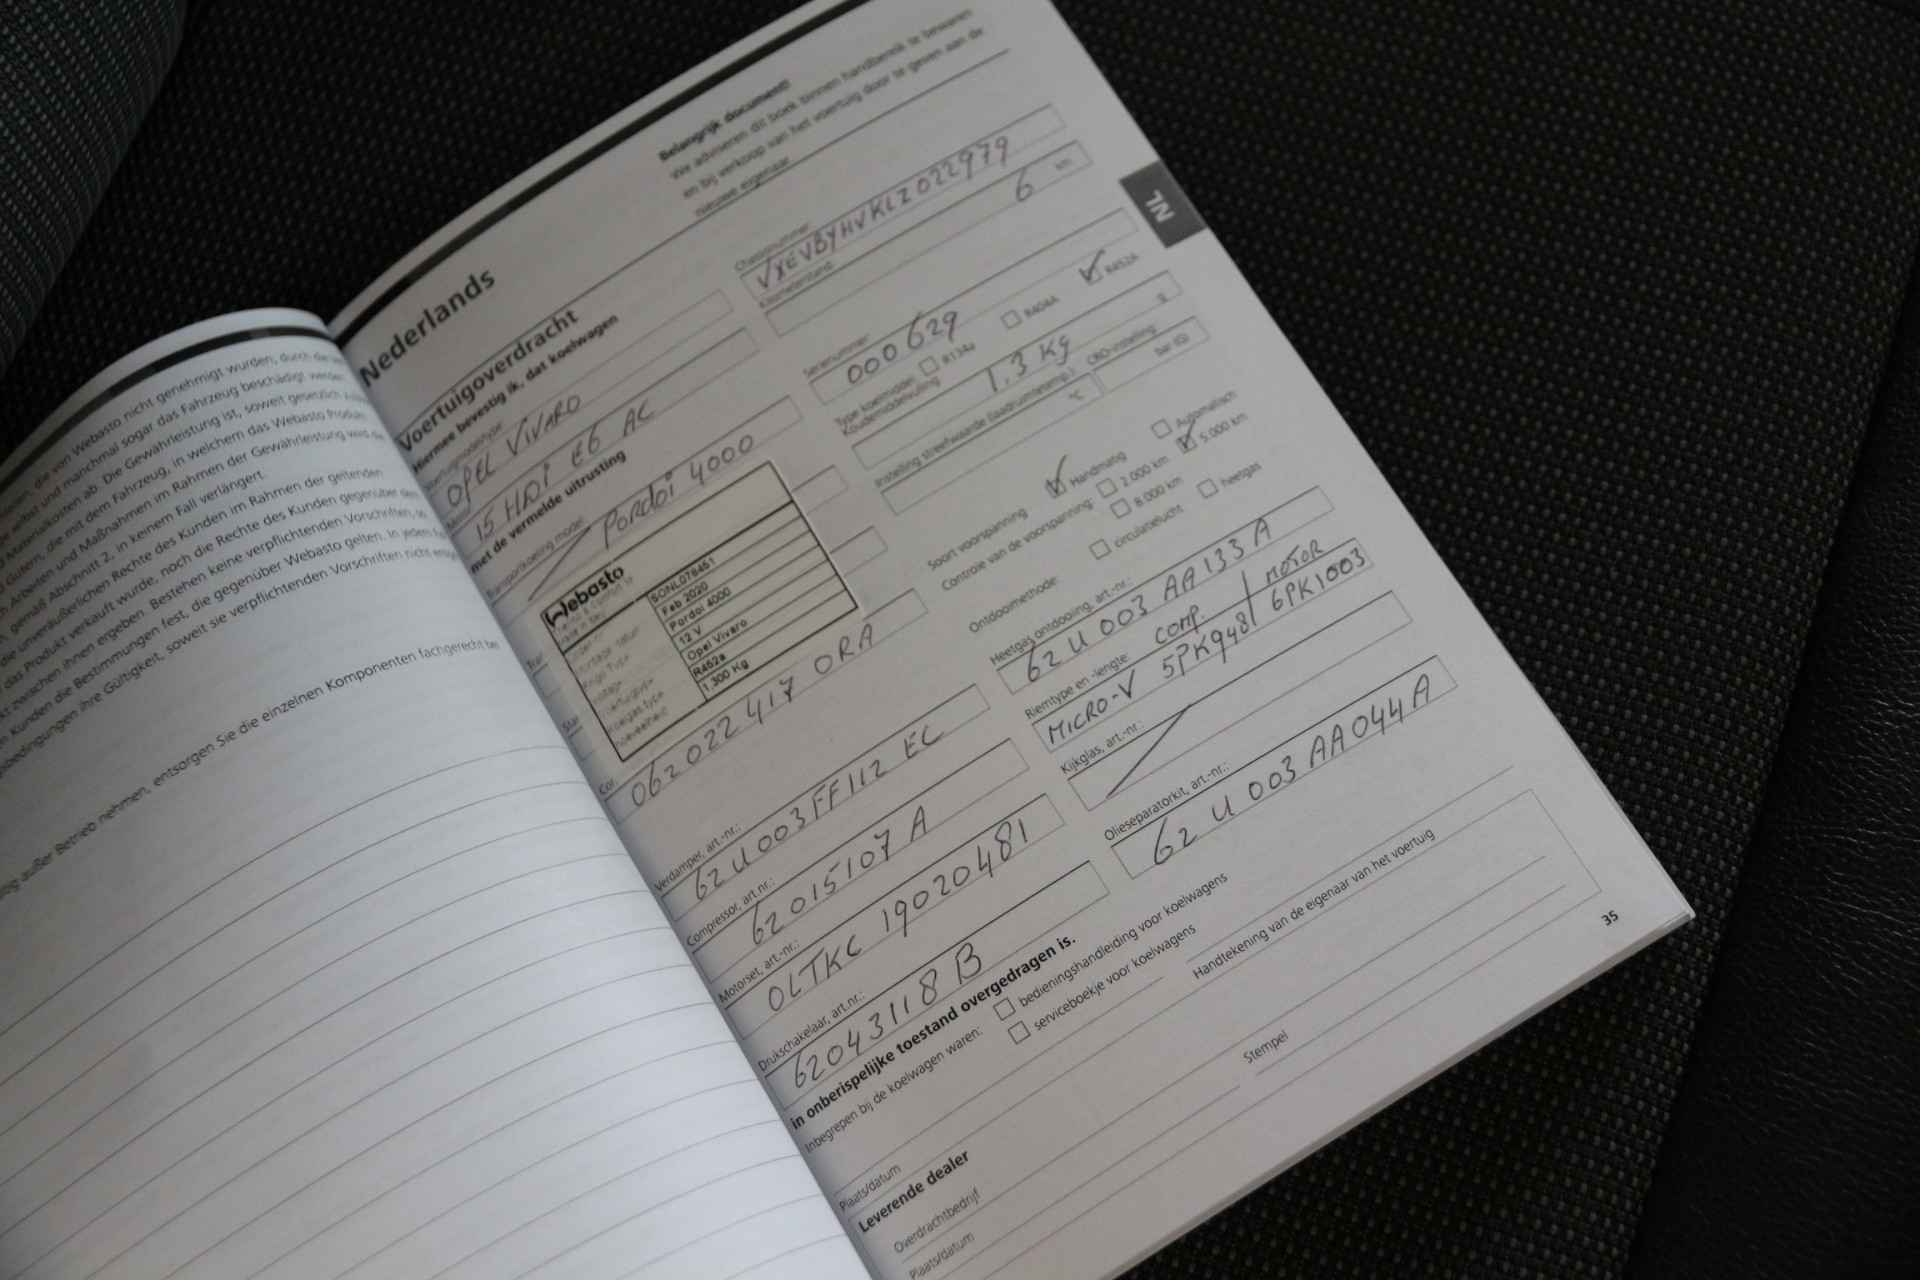 en, die von Webasto nicht genehmigt wurden, durch die
selbst und manchmal sogar das Fahrzeug beschädigt werden
Materialkosten ab. Die Gewährleistung ist, soweit gesetzlich
Gütern, die mit dem Fahrzeug, in welchem das Webasto Produkt
Arbeiten und Maßnahmen im Rahmen der Gewährleistung wird die
gemäß Abschnitt 2. in keinem Fall verlängert.
die unveräußerlichen Rechte des Kunden im Rahmen der geltenden
das Produkt verkauft wurde, noch die Rechte des Kunden gegenüber dem
zwischen ihnen ergeben. Bestehen keine verpflichtenden Vorschriften, so
Kunden die Bestimmungen fest, die gegenüber Webasto gelten. In jedem
bedingungen ihre Gültigkeit, soweit sie verpflichtenden Vorschriften nicht
außer Betrieb nehmen, entsorgen Sie die einzelnen Komponenten fachgerecht bei
Nederlands
Belangrijk document!
We adviseren dit boek binnen handbereik te bewaren
en bij verkoop van het voertuig door te geven aan de
nieuwe eigenaar
NL
Voertuigoverdracht
Hiermee bevestig ik, dat koelwagen
OPEL VIVARO
15 HDi E6 AC
Chassisnummer:
VXEVBYHVKLZ022979
Kilometerstand:
6 km
met de vermelde uitrusting
Transportkoeling model:
Pordoi 4000
Serienummer:
000629
Type koelmiddel: R134a R404A R452A
Koudemiddelvulling
1.3 Kg g
Instelling streefwaarde (laadruimtetemp.):
°C
CRO-instelling
bar (Ü)
Webasto
SONL076451
Feb 2020
Pordoi 4000
12 V
Opel Vivaro
R452a
1.300 Kg
Soort voorspanning Handmatig Automatisch
Controle van de voorspanning: 2.000 km 5.000 km
8.000 km
Ontdooimethode: circulatielucht heetgas
062022417 0RA
Heetgas ontdooing, art.-nr.:
62 U 003 AA133 A
Verdamper, art.-nr.:
62 U 003FF112 EC
Riemtype en -lengte: comp. motor
MICRO-V 5PK948 / 6PK1003
Compressor, art.nr.:
62 015107 A
Kijkglas, art.-nr.:
Motorset, art.-nr.:
OLTKC 19020481
Olieseparatorkit, art.-nr.:
62 U 003 AA044 A
Drukschakelaar, art.nr.:
62043118 B
in onberispelijke toestand overgedragen is.
Inbegrepen bij de koelwagen waren: bedieningshandleiding voor koelwagens
serviceboekje voor koelwagens
Plaats/datum
Handtekening van de eigenaar van het voertuig
Leverende dealer
Overdrachtbedrijf
Stempel
Plaats/datum
35